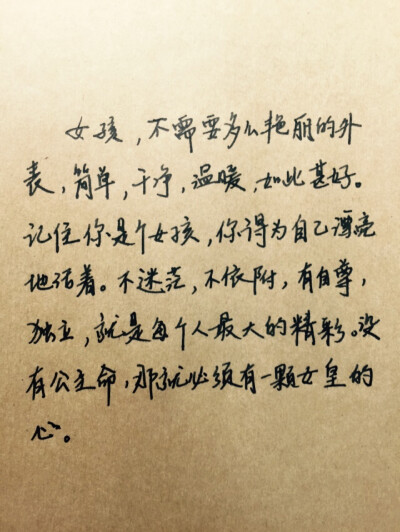 女孩，不需要多么艳丽的外
表，简单，干净，温暖，如此甚好。
记住你是个女孩，你得为自己漂亮
地活着。不迷茫，不依附，有自尊，
独立，就是每个人最大的精彩。没
有公主命，那就必须有一颗女皇的
心。